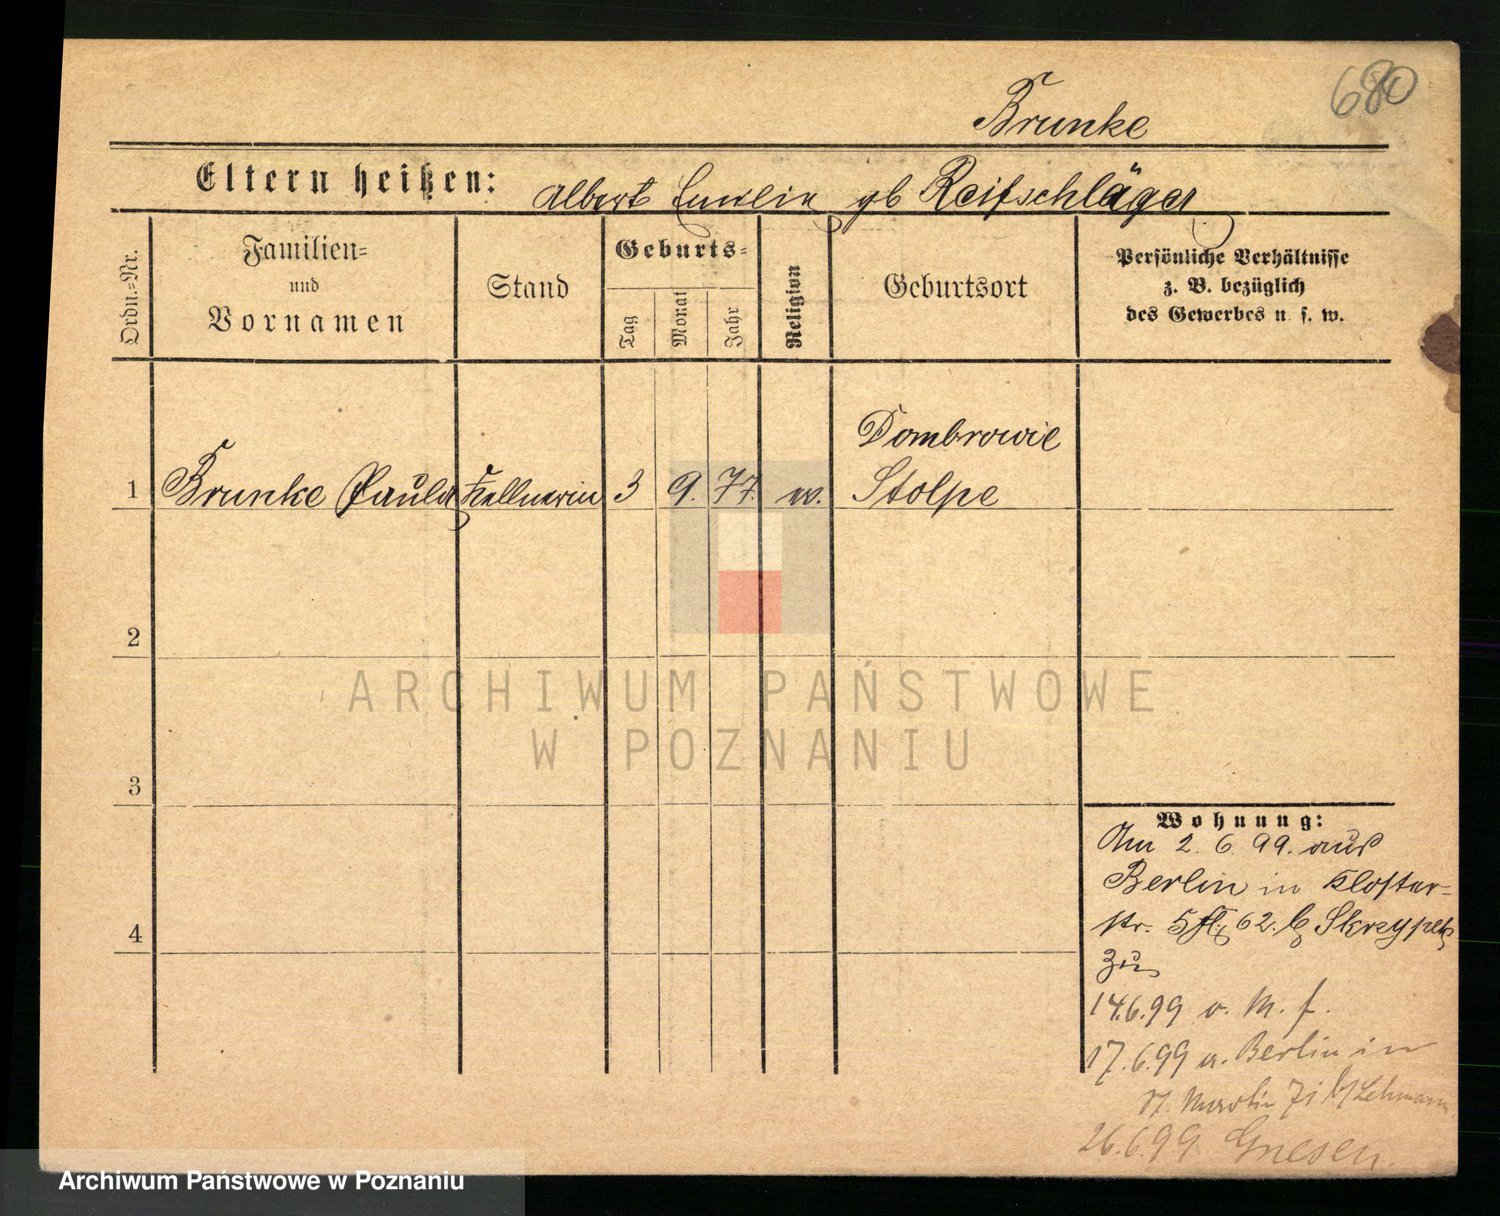 680
Brunke
Eltern heißen: Albert Emilie gb Reifschläger
Ordn.-Nr.
Familien-
und
Vornamen
Stand
Geburts-
Tag
Monat
Jahr
Religion
Geburtsort
Persönliche Verhältnisse
z. B. bezüglich
des Gewerbes u. s. w.
Dombrowie
1 Brunke Paula Kellnerin 3 9. 77. ev. Stolpe
2
ARCHIWUM PAŃSTWOWE
W POZNANIU
3
4
Wohnung:
Am 2. 6. 99. aus
Berlin in Kloster-
str. 5 62. b Skrzypek
zu
14.6.99 o. M. f.
17.6.99 a. Berlin in
St. Martin b/ Lehmann
26.6.99 Gnesen.
Archiwum Państwowe w Poznaniu